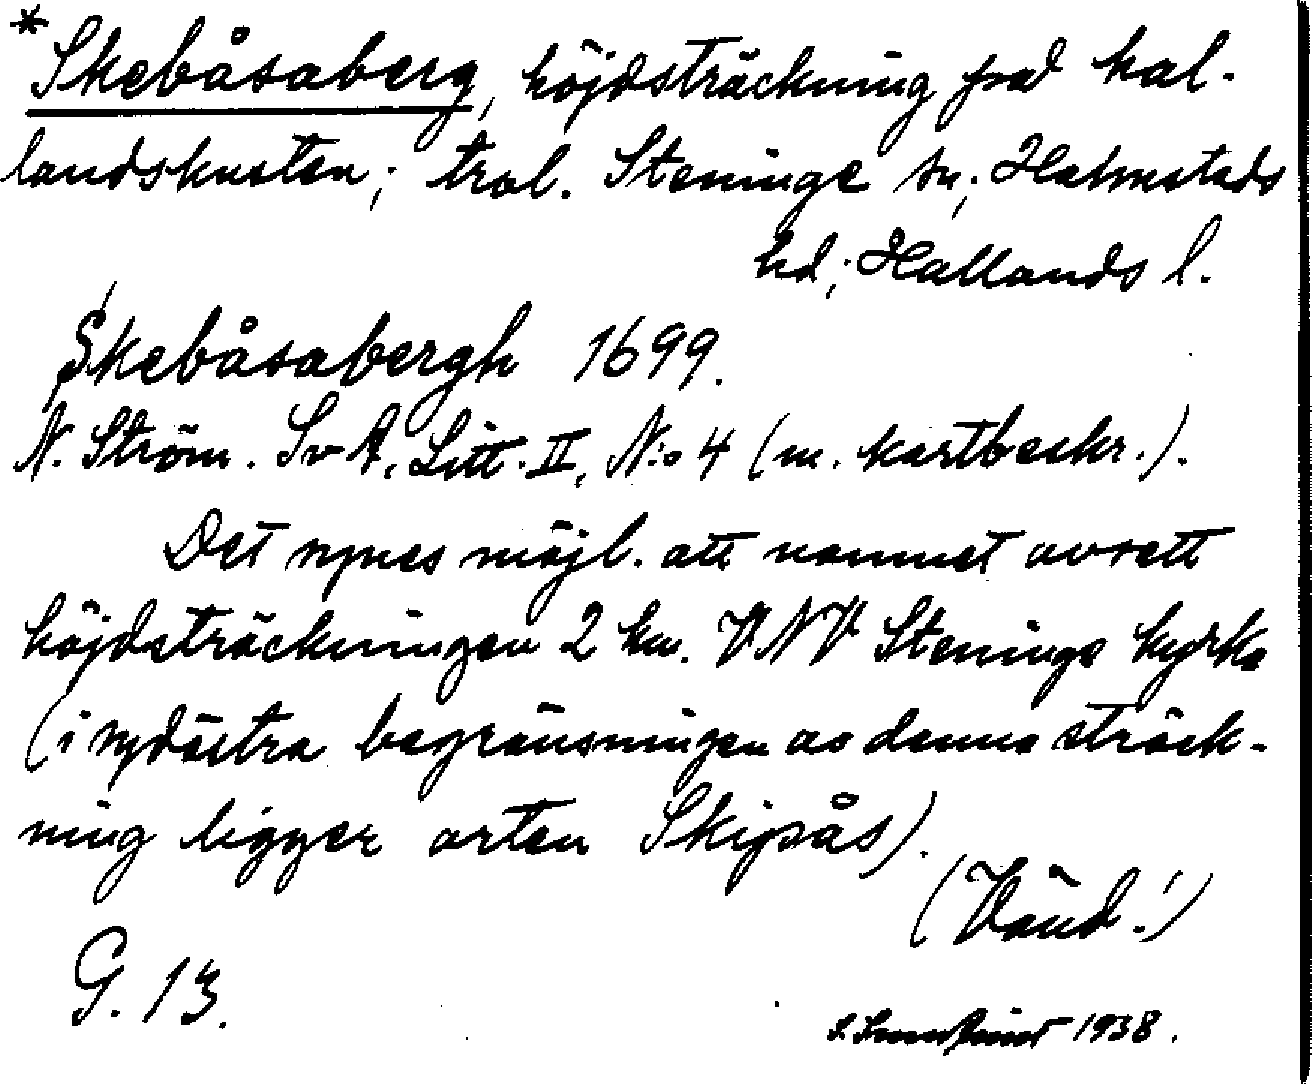 *Skebåsaberg, höjdsträckning på hal-
landskusten; trol. Steninge sn; Halmstads
hd; Hallands l.
Skebåsabergh 1699.
N. Ström. SvA, Litt. II, N:o 4 (m. kartbeskr.).
Det synes möjl. att namnet avsett
höjdsträckningen 2 km. VNV Steninge kyrka
(i sydöstra begränsningen av denna sträck-
ning ligger orten Skipås).
(Vänd!)
G. 13.
1938.